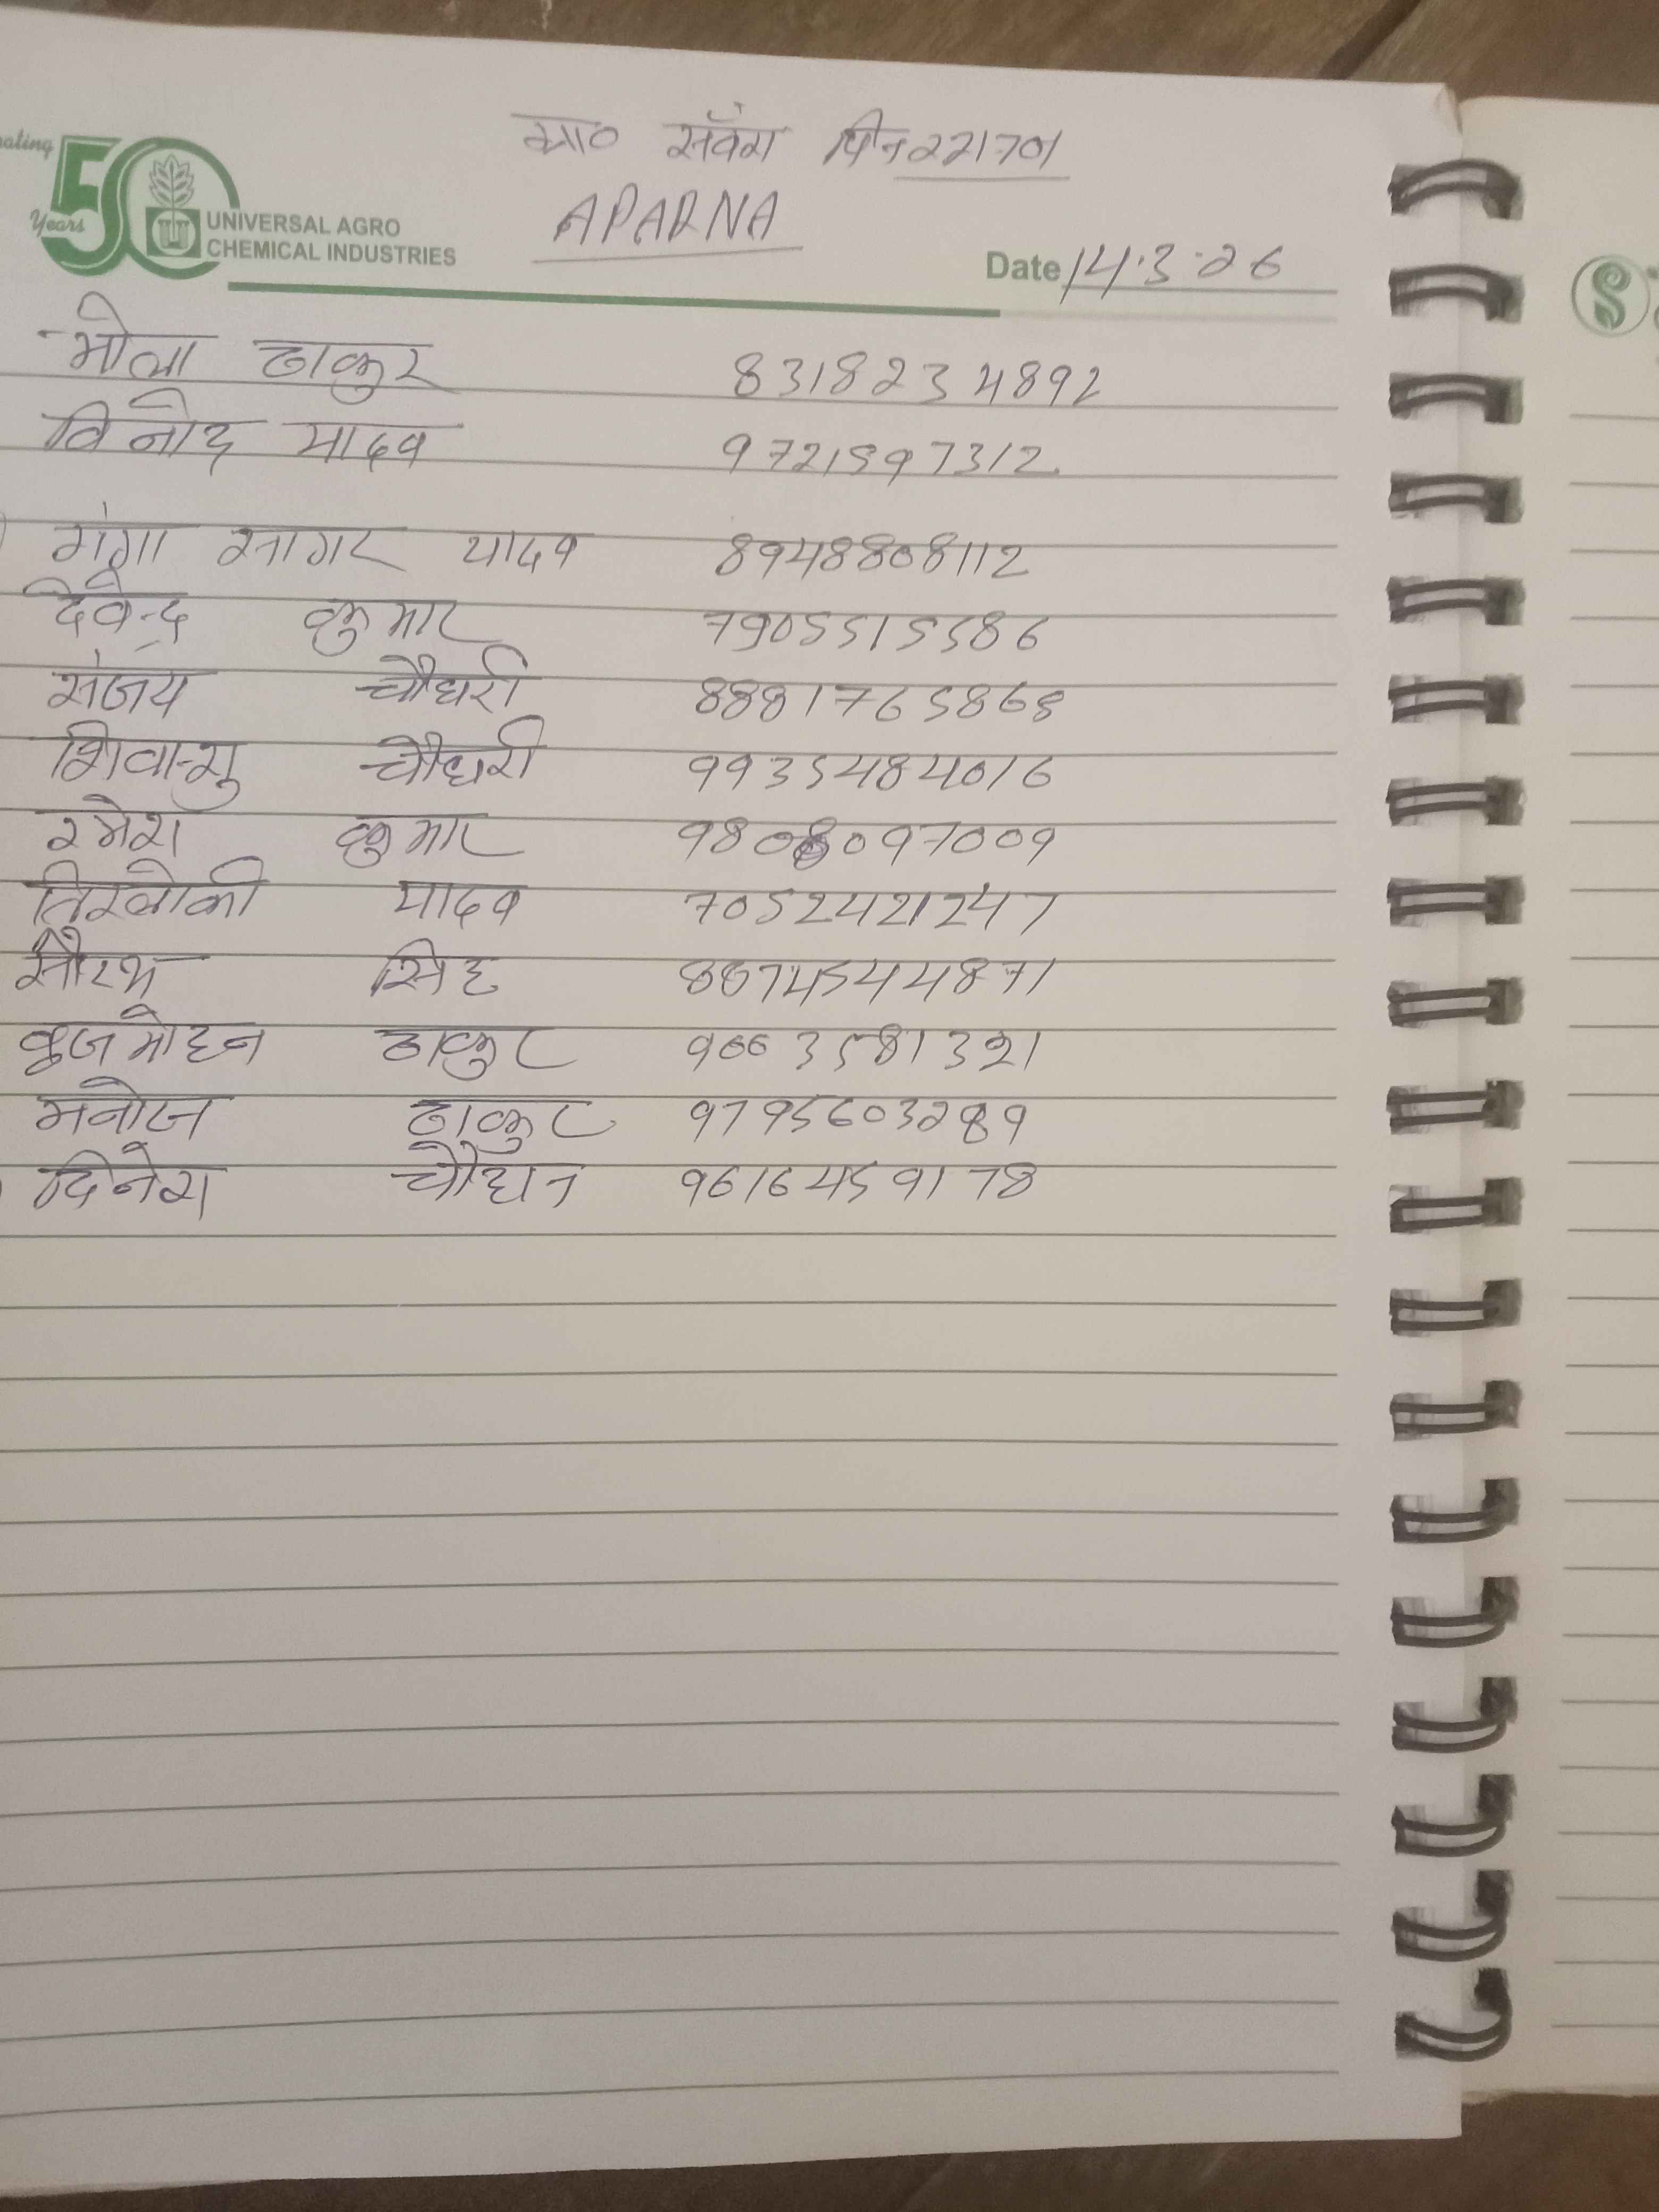 ग्रा० सॅवरा पिन 221701
APARNA
50 Years
UNIVERSAL AGRO
CHEMICAL INDUSTRIES
Date 14.3.26
भोला ठाकुर 8318234892
विनोद यादव 9721597312
गंगा सागर यादव 8948808112
देवेन्द्र कुमार 7905515586
संजय चौधरी 8881765868
शिवान्शु चौधरी 9935484016
रमेश कुमार 9808097009
तिरलोकी यादव 7052421247
सौरभ सिंह 8874544871
बृजमोहन ठाकुर
मनोज ठाकुर 9795603289
दिनेश चौहान 9616459178